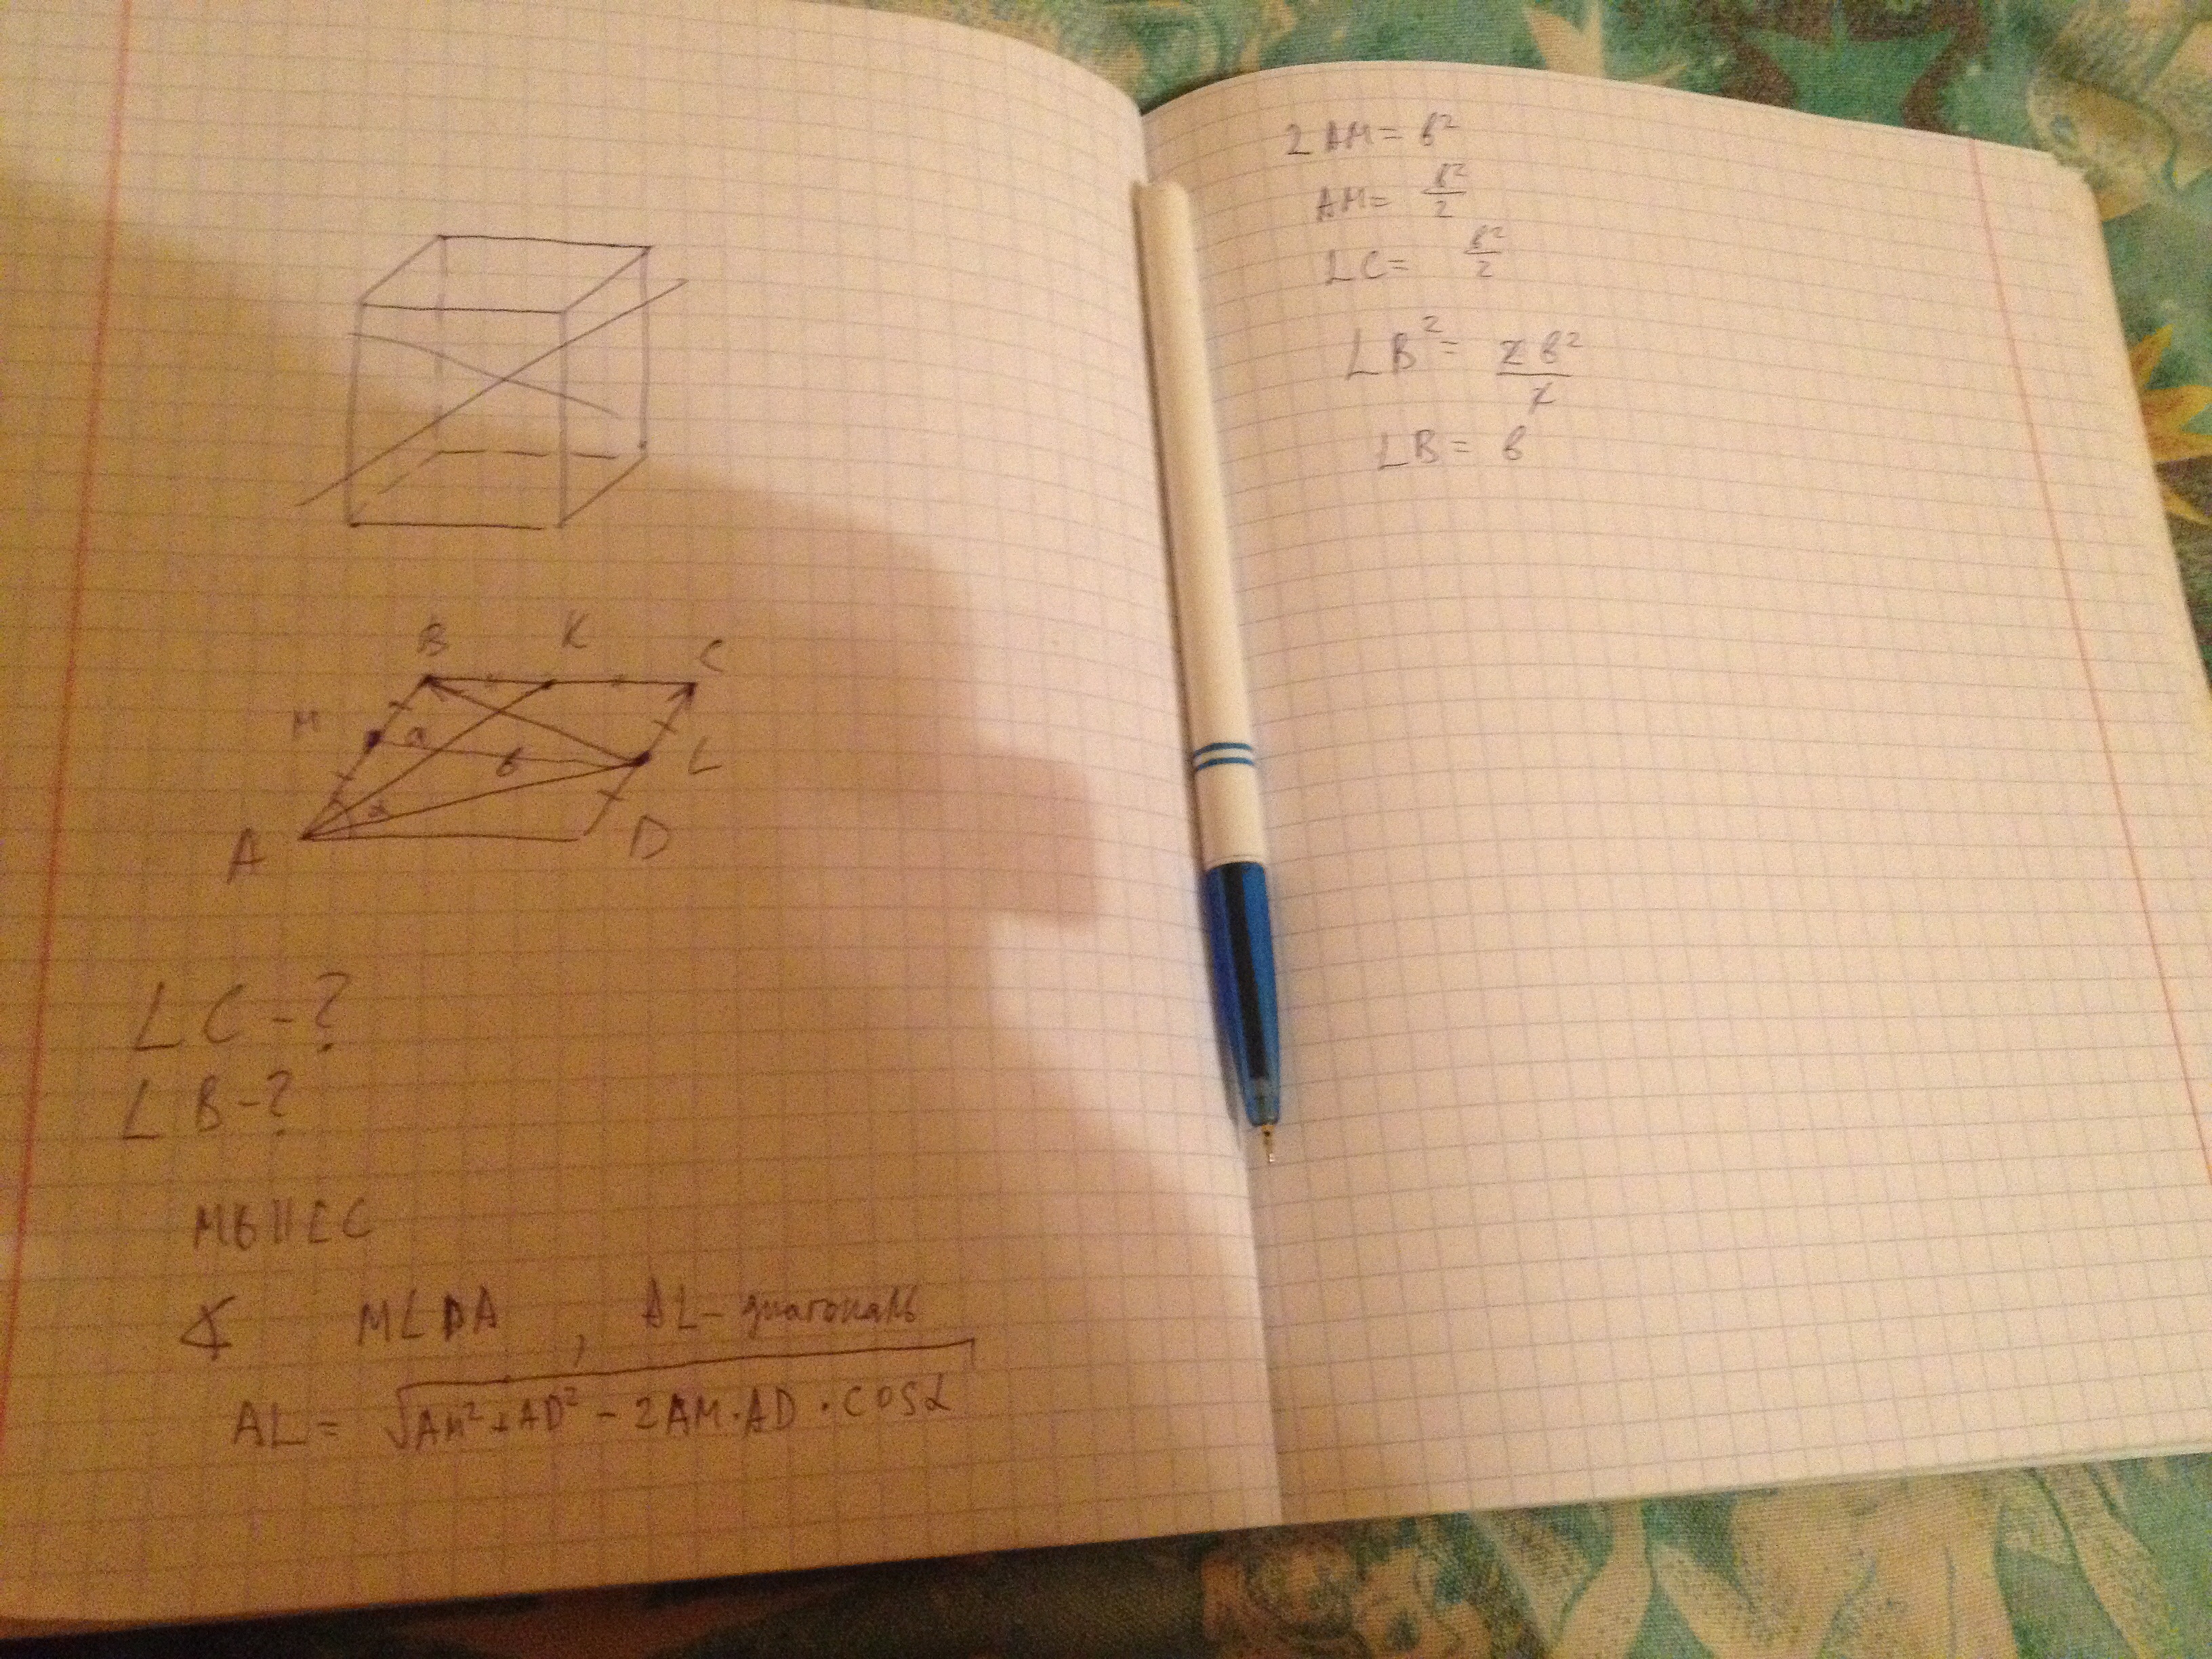 B K C
M a
в L
α
A D
LC-?
LB-?
MB || LC
∢ MLDA, AL-диагональ
AL = √AM²+AD² - 2AM·AD·cosα
2AM = в²
AM = в²/2
LC = в²/2
LB² = 2в²/2
LB = в